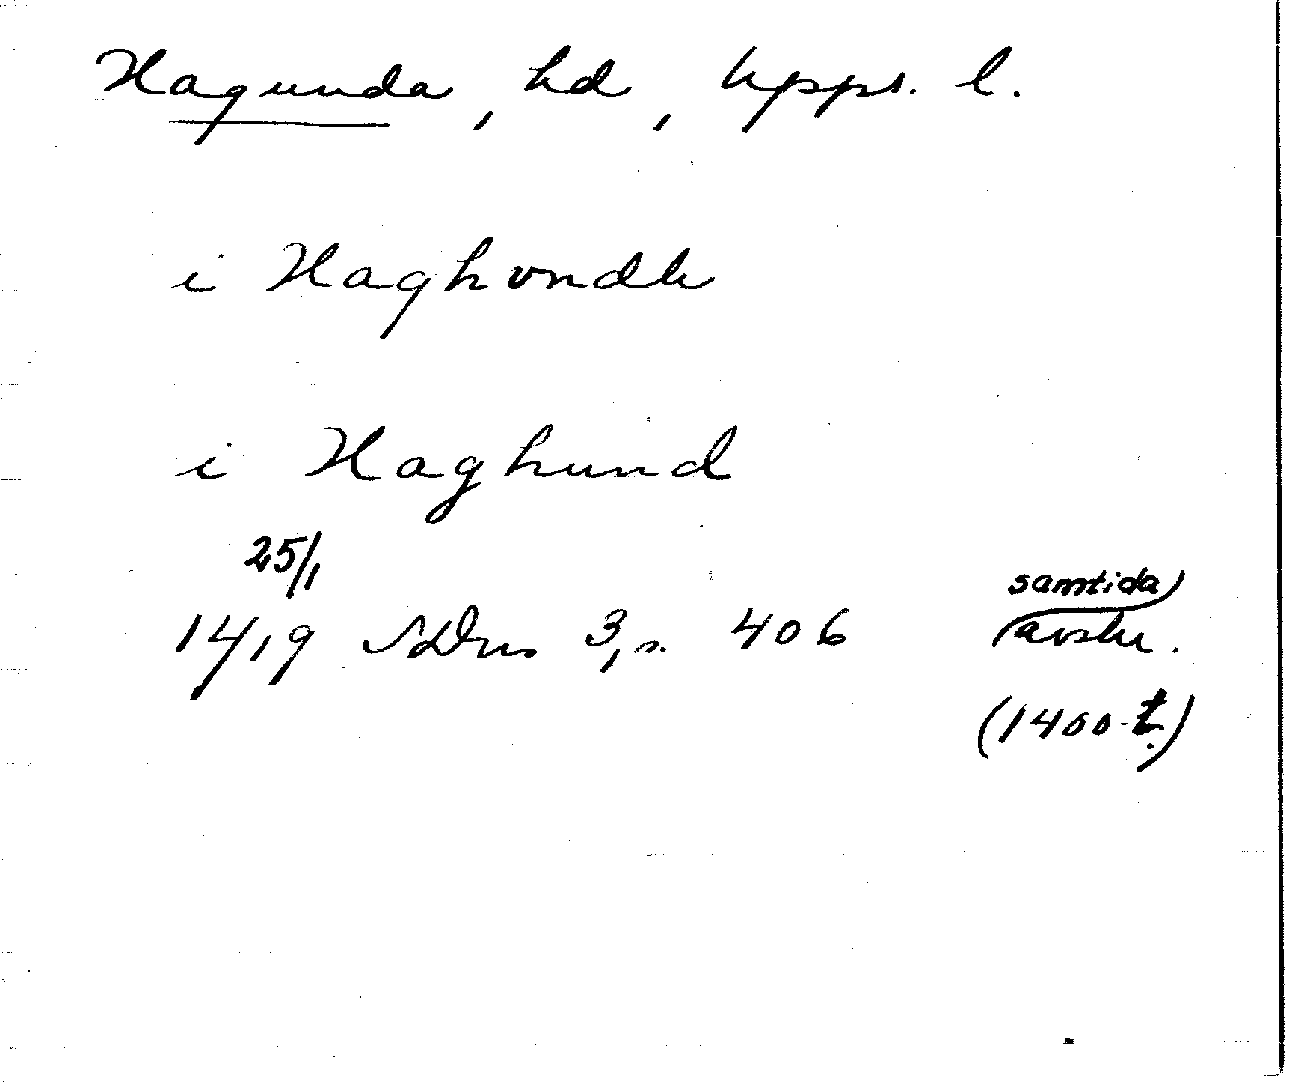 Hagunda, hd, Upps. l.
i Haghvndh
i Haghund
25/1
1419 SDns 3, s. 406
samtida
avskr.
(1400-t.)